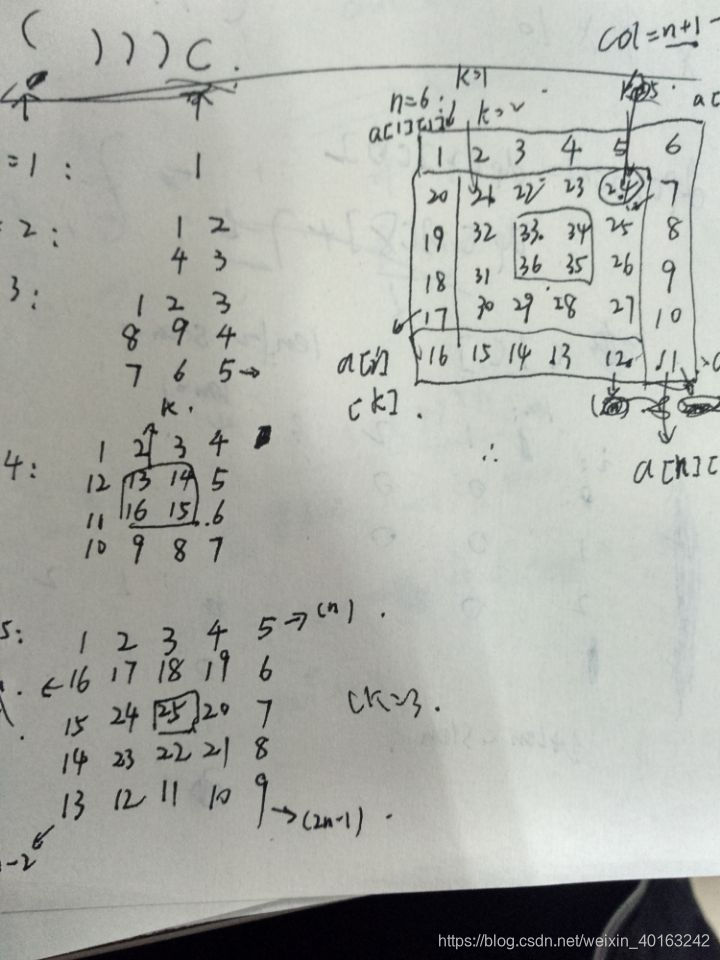 ( ) ) ) C .
col = n+1 -
=1 : 1
2 : 1 2
4 3
3 : 1 2 3
8 9 4
7 6 5 →
k .
4 : 1 2 3 4
12 13 14 5
11 16 15 6
10 9 8 7
5 : 1 2 3 4 5 → (n) .
← 16 17 18 19 6
15 24 25 20 7
14 23 22 21 8
13 12 11 10 9 → (2n-1)
-2
(k=3 .
n=6 : k=1
a[1][1] k=2
1 2 3 4 5 6
20 21 22 23 24 7
19 32 33 34 25 8
18 31 36 35 26 9
17 30 29 28 27 10
16 15 14 13 12 11
a[i]
[k] .
∴
a[n][
https://blog.csdn.net/weixin_40163242